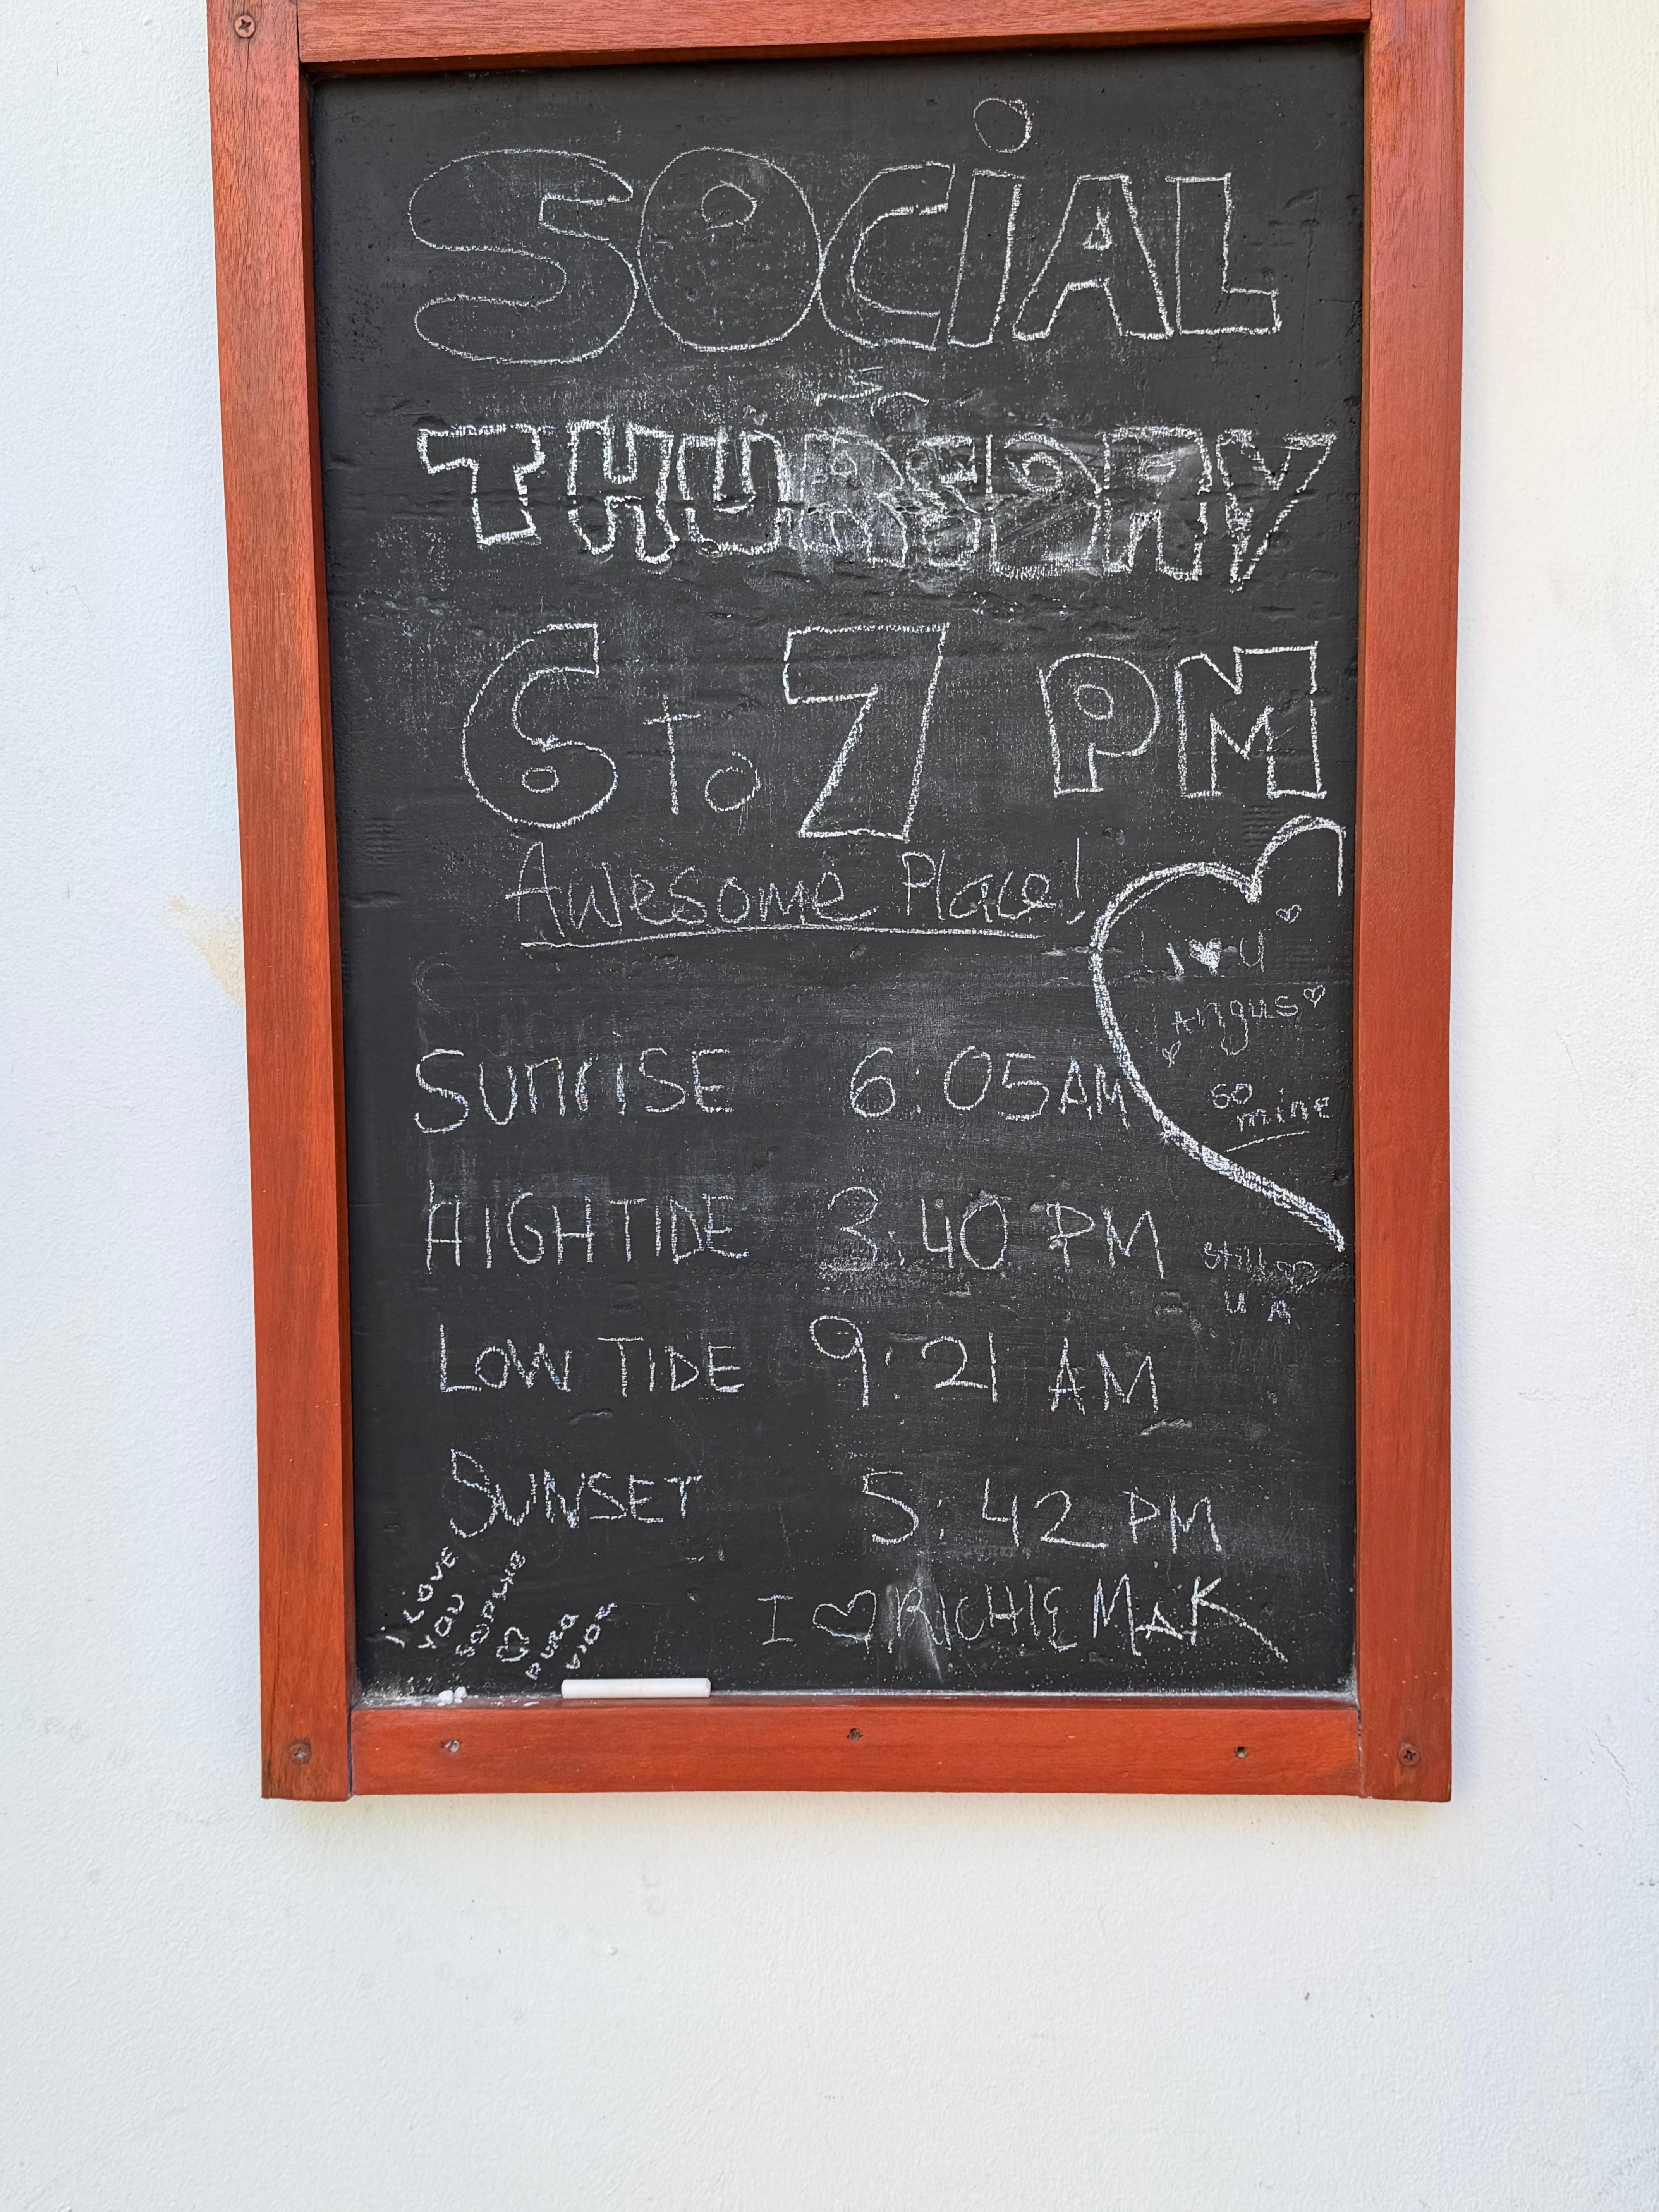 SOCiAL
THURSDAY
6 to 7 PM
Awesome Place!
I ♥ U
Angus ♡
so
mine
SUnriSE 6:05AM
HIGH TIDE 3:40 PM
still ♡
U
LOW TIDE 9:21 AM
SUNSET 5:42 PM
I LOVE
YOU
♡ PURA
VIDA
I ♡ RICHIE MAK